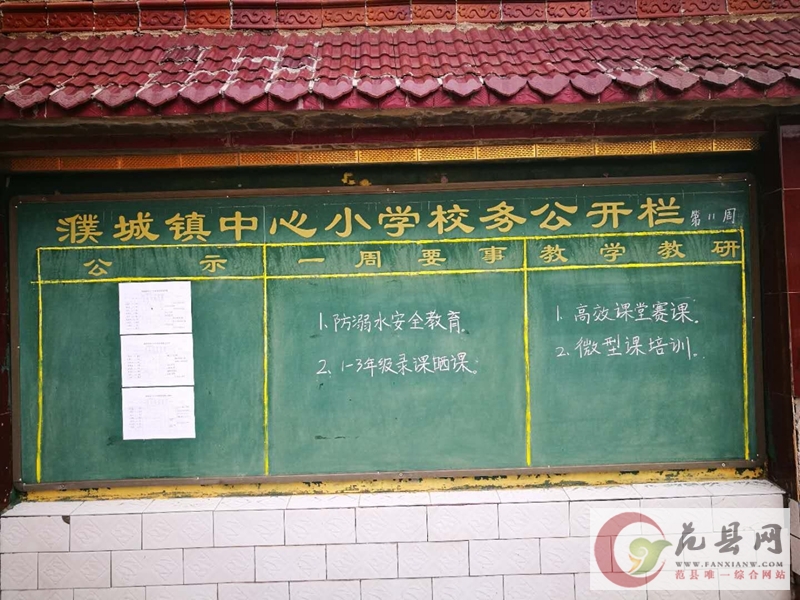 濮城镇中心小学校务公开栏 第11周
公示 一周要事 教学教研
1.防溺水安全教育。
2、1-3年级录课晒课。
1.高效课堂赛课。
2.微型课培训。
范县网
WWW.FANXIANW.COM
范县唯一综合网站